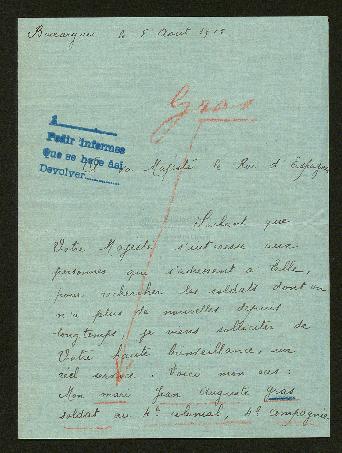 le 5 Août 1915
Gras
1
Pedir informes
Que se hace así
Devolver
Sa Majesté le Roi d'Espagne
Sachant que
Votre Majesté s'interesse aux
personnes qui s'adressent à Elle,
pour rechercher les soldats dont on
n'a plus de nouvelles depuis
longtemps, je viens solliciter de
Votre haute bienveillance, un
réel service. Voici mon cas:
Mon mari Jean Auguste Gras
soldat au 4e colonial, 4e compagnie